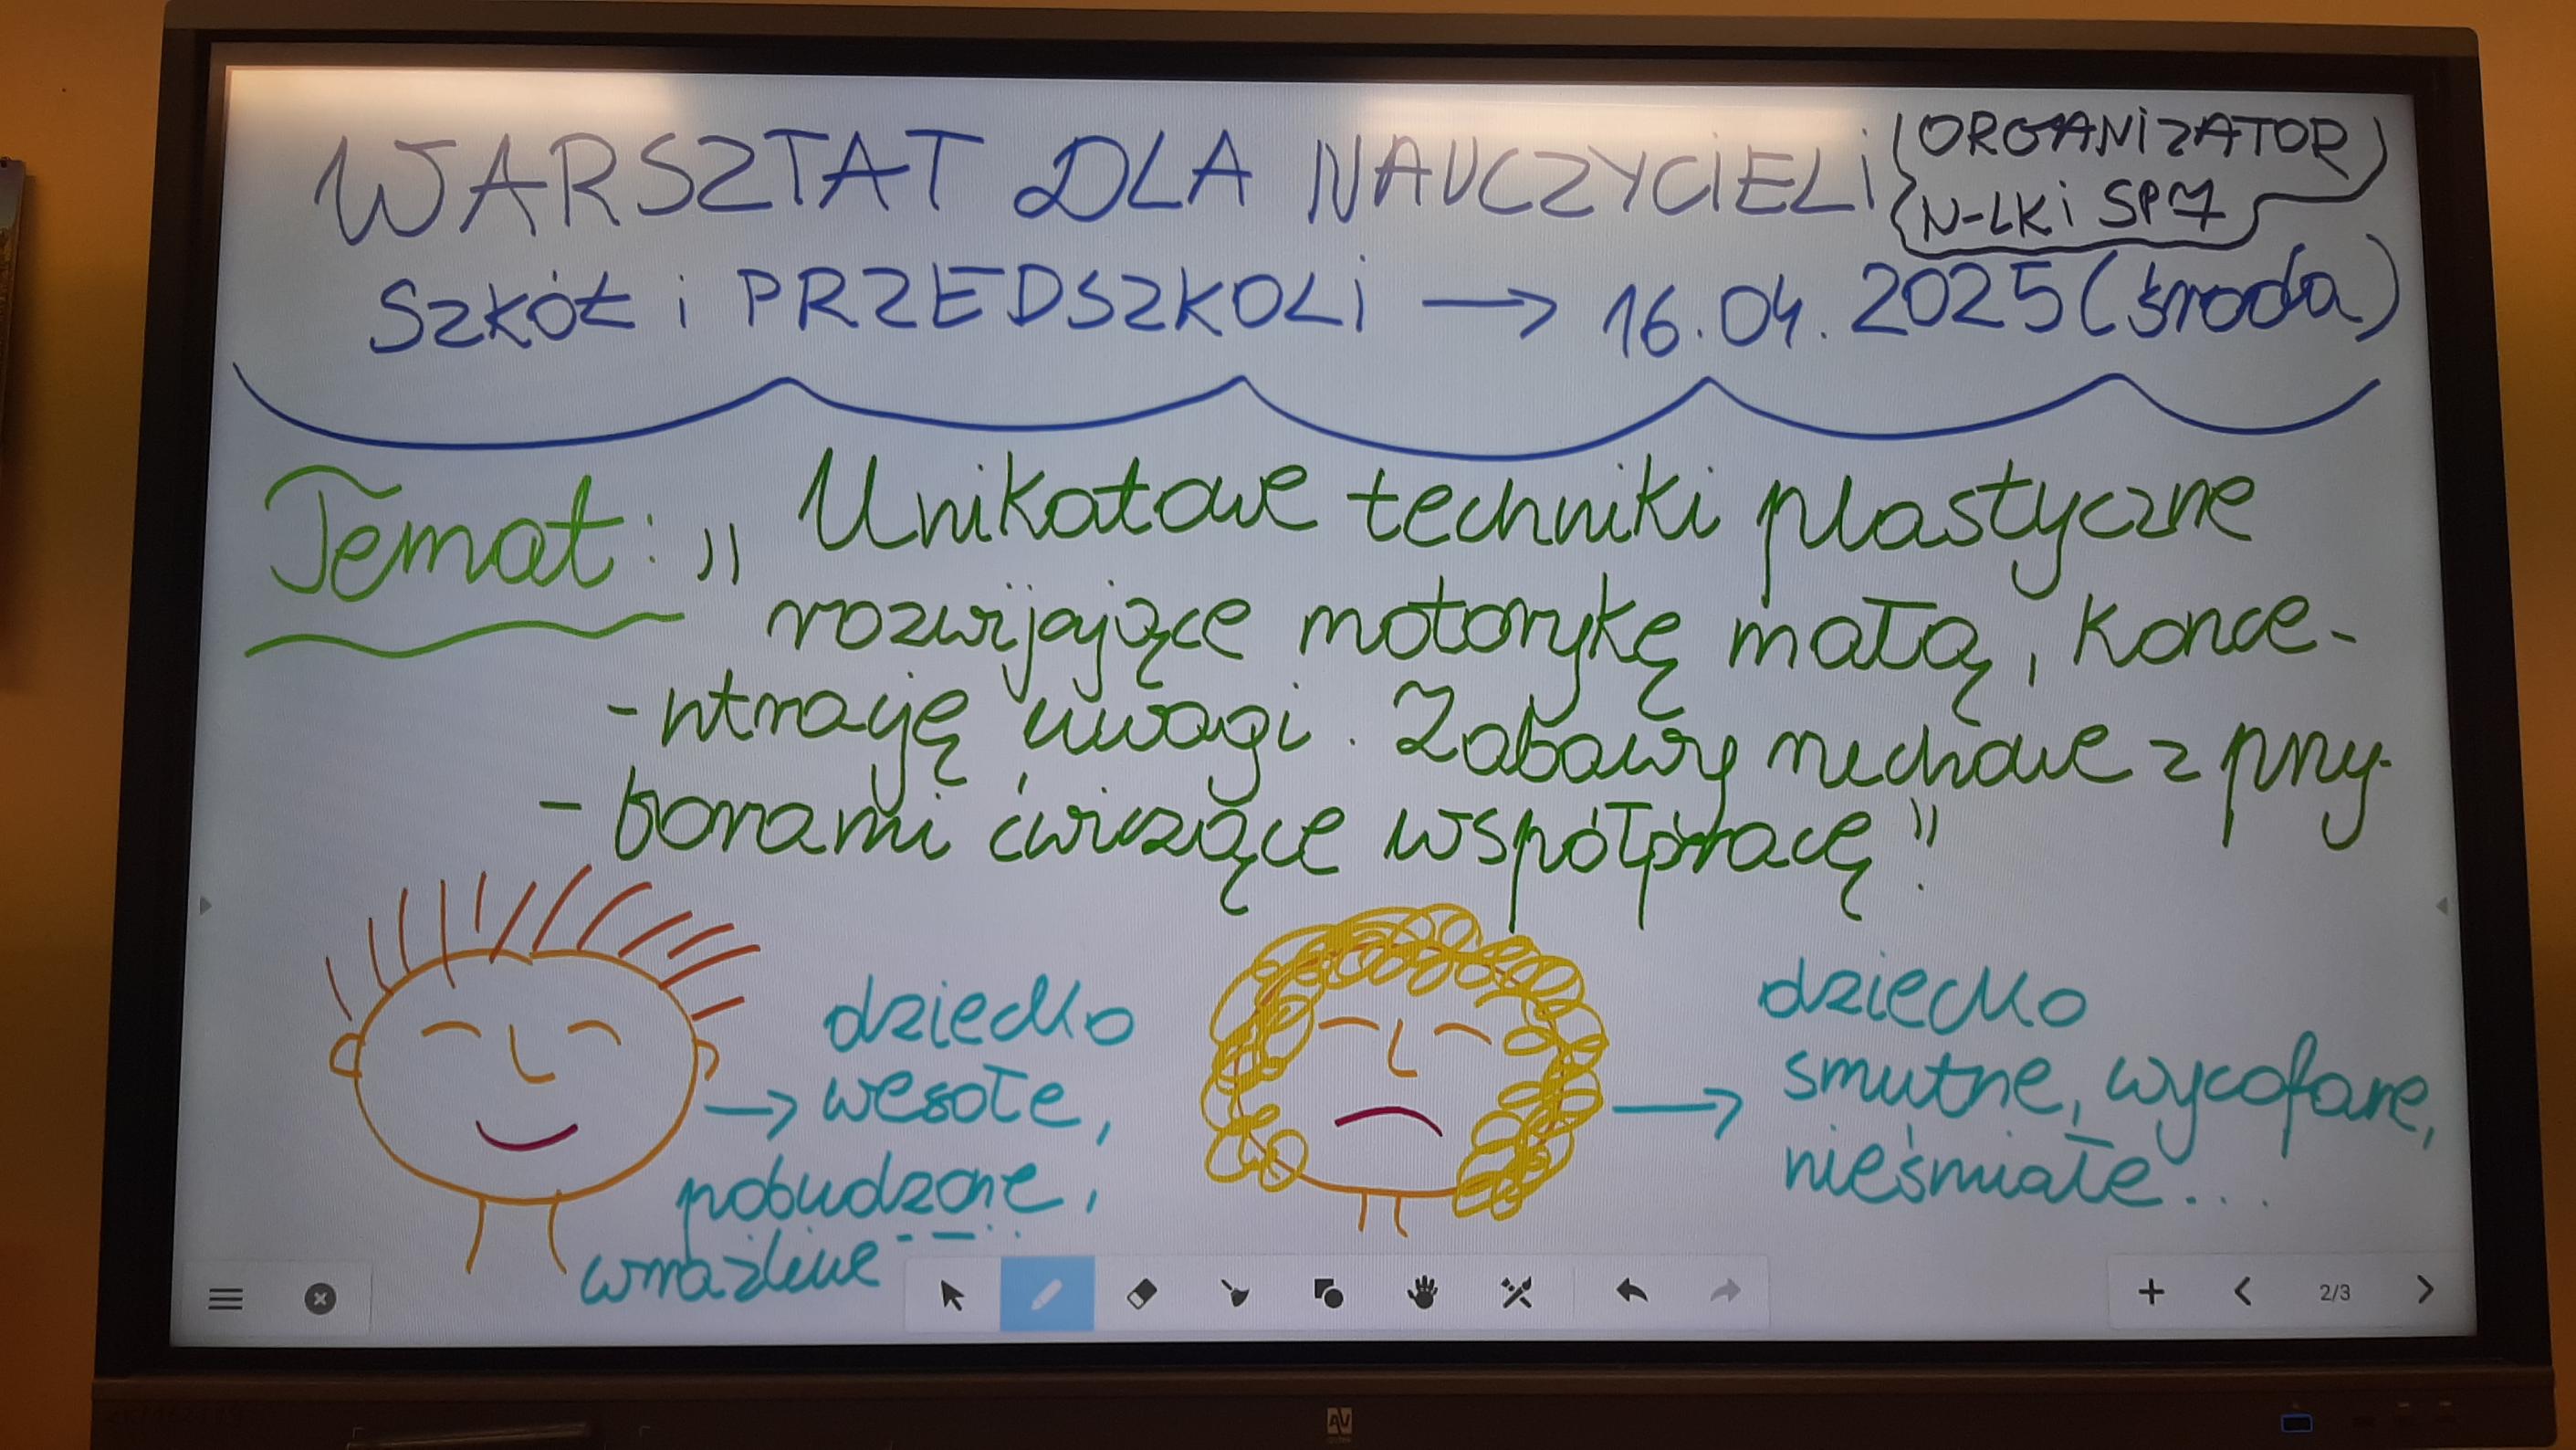 WARSZTAT DLA NAUCZYCIELi
(ORGANiZATOR
N-LKi SP7)
SZKÓŁ i PRZEDSZKOLi → 16.04.2025 (środa)
Temat: „Unikatowe techniki plastyczne
rozwijające motorykę małą, konce-
-ntrację uwagi. Zabawy ruchowe z przy-
-borami ćwiczące współpracę"!
dziecko
→ wesołe,
pobudzone,
wrażliwe
dziecko
→ smutne, wycofane,
nieśmiałe...
2/3
AV